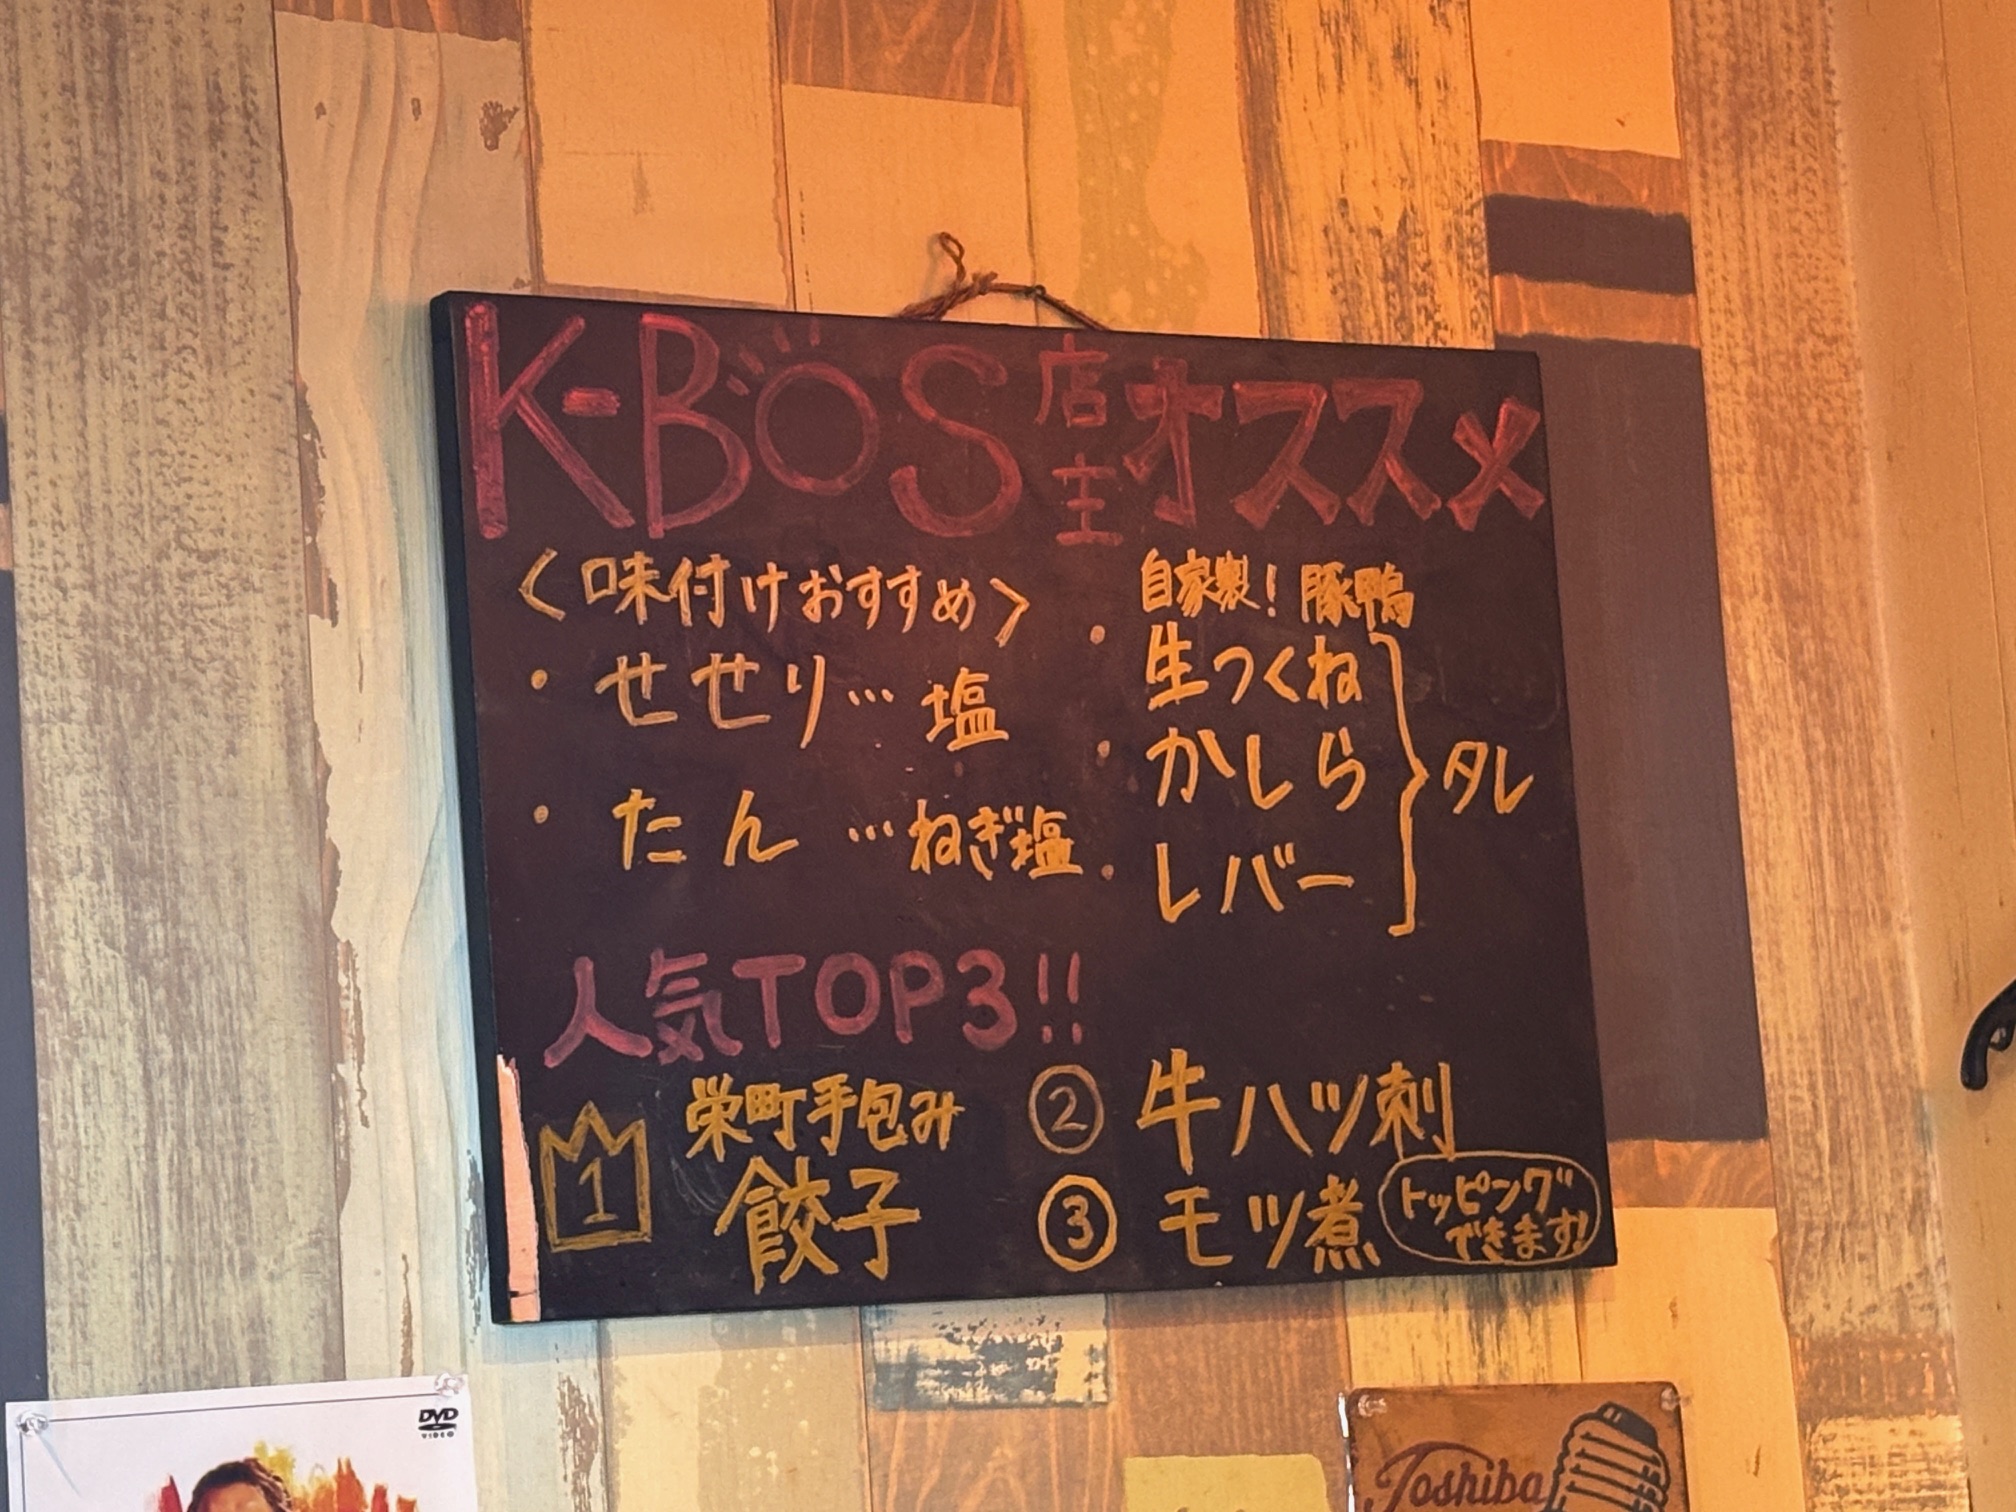 K-BOS店主オススメ
<味付けおすすめ>
・せせり…塩
・たん…ねぎ塩
自家製!豚鴨
・生つくね
・かしら
・レバー
タレ
人気TOP3!!
1
栄町手包み
餃子
② 牛ハツ刺
③ モツ煮
トッピング
できます!
DVD
VIDEO
Toshiba